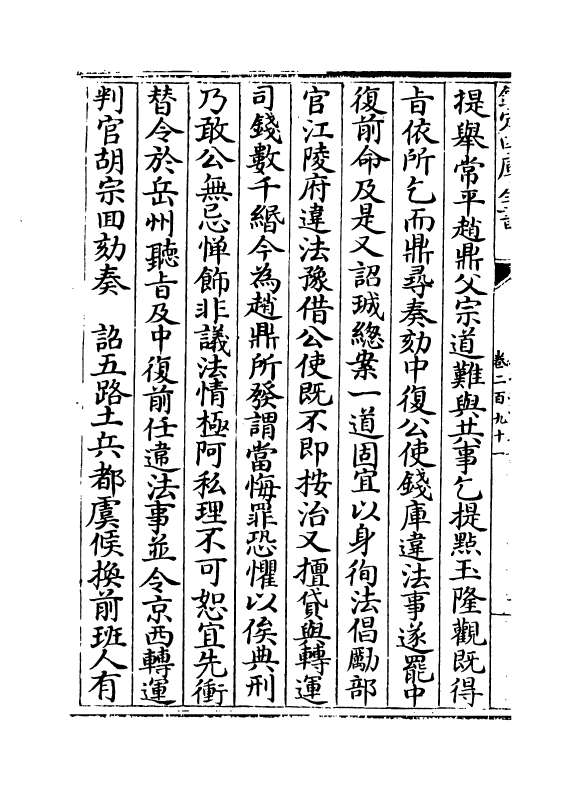 欽定四庫全書
卷二百九十一
提舉常平趙鼎父宗道難與共事乞提點玉隆觀既得
㫖依所乞而鼎尋奏劾中復公使錢庫違法事遂罷中
復前命及是又詔珹總案一道固宜以身徇法倡勵部
官江陵府違法豫借公使既不即按治又擅貸與轉運
司錢數千緡今為趙鼎所發謂當悔罪恐懼以俟典刑
乃敢公無忌憚飾非議法情極阿私理不可恕宜先衝
替令於岳州聽㫖及中復前任違法事並令京西轉運
判官胡宗囬劾奏　詔五路土兵都虞候換前班人有